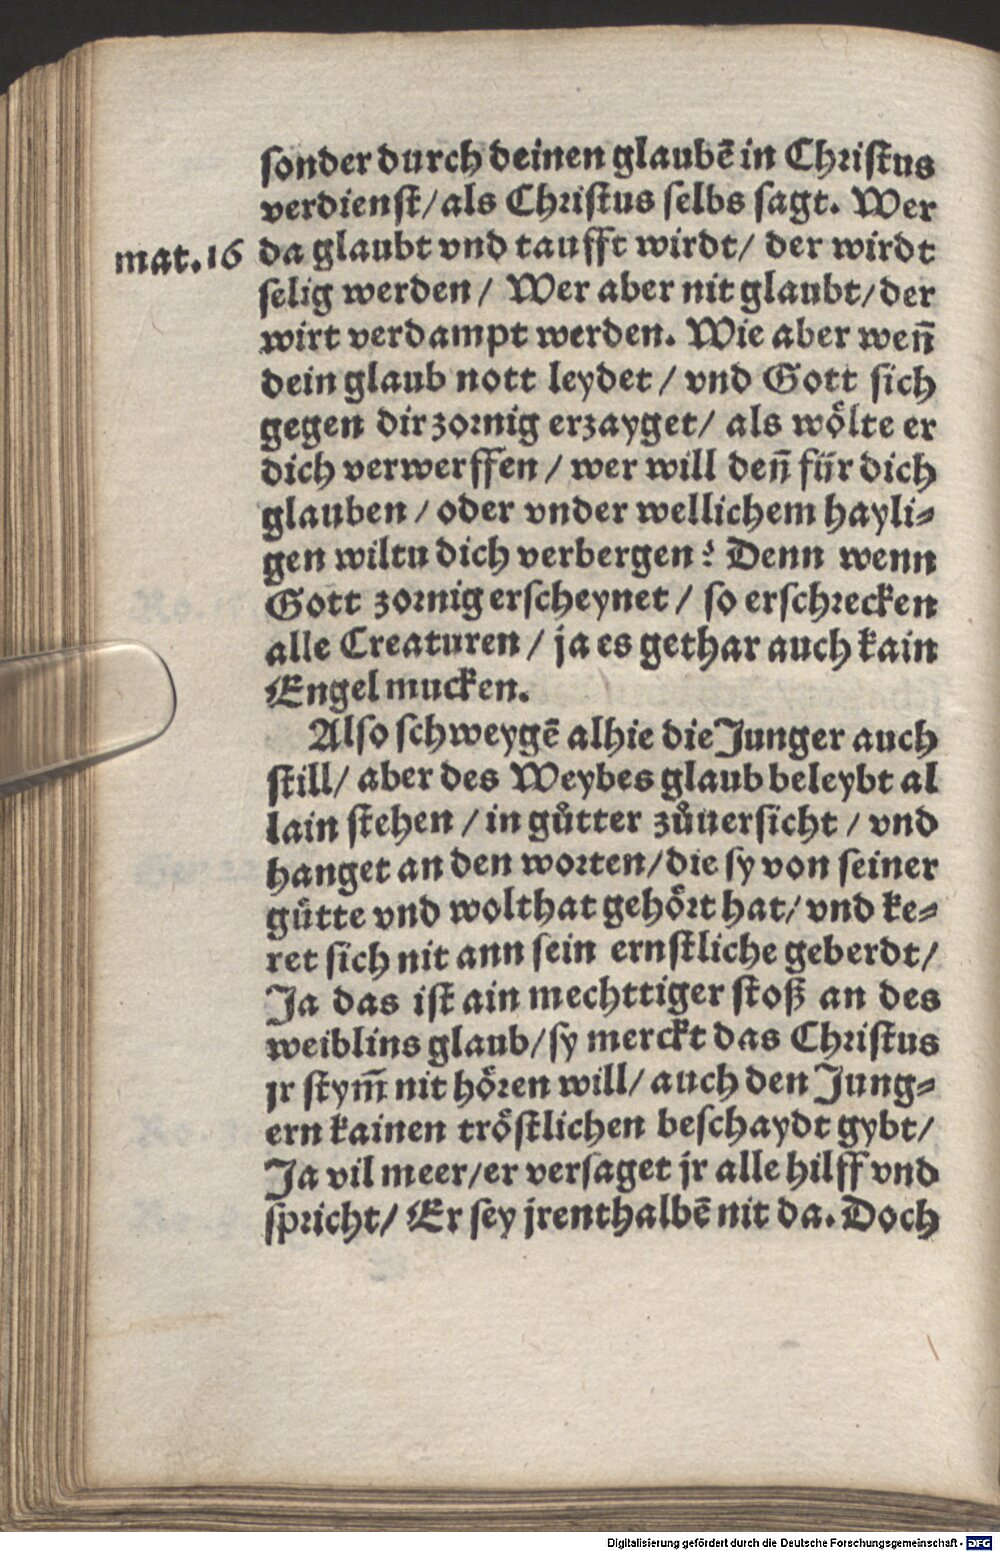 sonder durch deinen glaubē in Christus
verdienst/ als Christus selbs sagt. Wer
mat.16 da glaubt vnd taufft wirdt/ der wirdt
selig werden / Wer aber nit glaubt/ der
wirt verdampt werden. Wie aber weñ
dein glaub nott leydet / vnd Gott sich
gegen dir zornig erzayget/ als wo̊lte er
dich verwerffen / wer will deñ für dich
glauben / oder vnder wellichem hayli⸗
gen wiltu dich verbergen? Denn wenn
Gott zornig erscheynet / so erschrecken
alle Creaturen / ja es gethar auch kain
Engel mucken.
Also schweygē alhie die Junger auch
still/ aber des Weybes glaub beleybt al
lain stehen / in gůtter zůuersicht / vnd
hanget an den worten/ die sy von seiner
gůtte vnd wolthat gehöꝛt hat/ vnd ke⸗
ret sich nit ann sein ernstliche geberdt/
Ja das ist ain mechttiger stoß an des
weiblins glaub/ sy merckt das Christus
jr stym̃ nit hören will/ auch den Jung⸗
ern kainen tröstlichen beschaydt gybt/
Ja vil meer/ er versaget jr alle hilff vnd
spricht/ Er sey jrenthalbē nit da. Doch
Digitalisierung gefördert durch die Deutsche Forschungsgemeinschaft - DFG